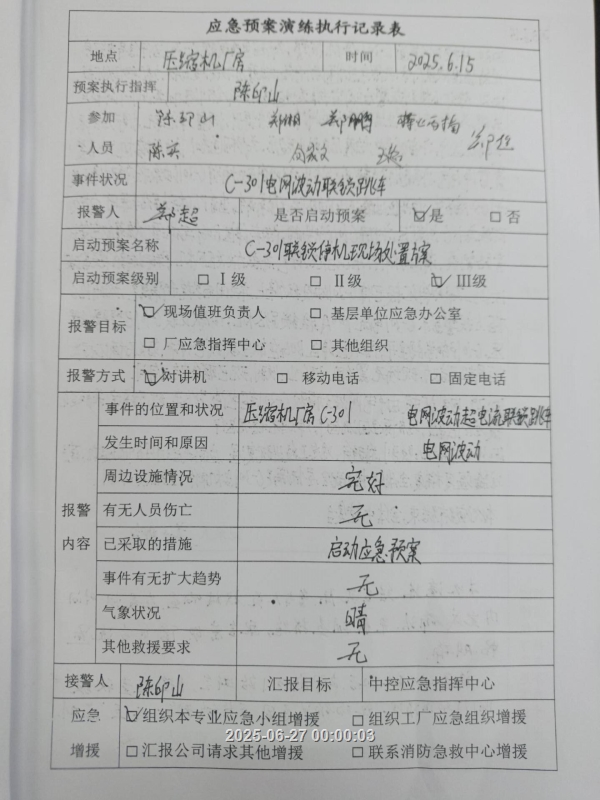 应急预案演练执行记录表
地点 压缩机厂房 时间 2025.6.15
预案执行指挥 陈印山
参加 陈印山 郑鹏
人员 陈英 郑超
事件状况 C-301电网波动联锁跳车
报警人 郑超 是否启动预案 ☑是 □否
启动预案名称 C-301联锁停机现场处置方案
启动预案级别 □Ⅰ级 □Ⅱ级 ☑Ⅲ级
报警目标 ☑现场值班负责人 □基层单位应急办公室
□厂应急指挥中心 □其他组织
报警方式 ☑对讲机 □移动电话 □固定电话
报警内容
事件的位置和状况 压缩机厂房C-301 电网波动超电流联锁跳车
发生时间和原因 电网波动
周边设施情况 完好
有无人员伤亡 无
已采取的措施 启动应急预案
事件有无扩大趋势 无
气象状况 晴
其他救援要求 无
接警人 陈印山 汇报目标 中控应急指挥中心
应急 ☑组织本专业应急小组增援 □组织工厂应急组织增援
增援 □汇报公司请求其他增援 □联系消防急救中心增援
2025-06-27 00:00:03